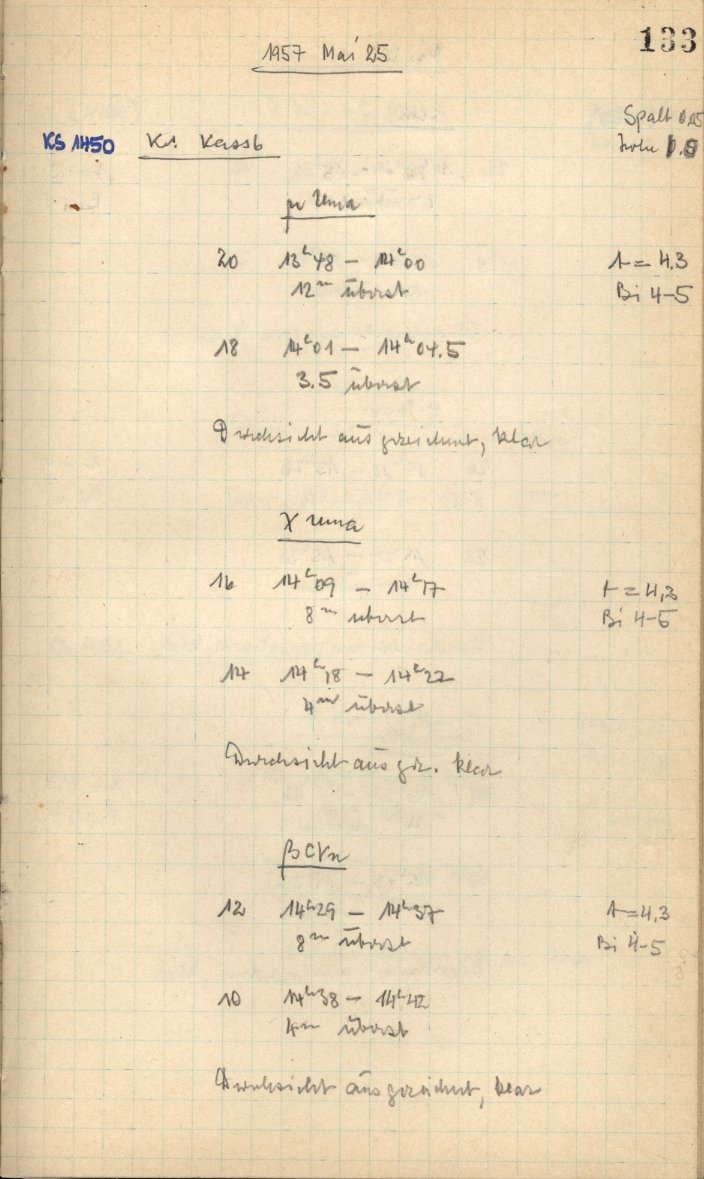 133
1957 Mai 25
Spalt 0.05
KS 1450 Kl. Kass b
Höhe
μ Uma
20 13ʰ48 – 14ʰ00 t = 4.3
12ᵐ überst Bi 4–5
18 14ʰ01 – 14ʰ04.5
3.5 überst
Durchsicht ausgezeichnet, klar
χ Uma
16 14ʰ09 – 14ʰ17 t = 4,3
8ᵐ überst Bi 4–5
14 14ʰ18 – 14ʰ22
4ᵐ überst
Durchsicht ausgez. klar
β CVn
12 14ʰ29 – 14ʰ37 t = 4,3
8ᵐ überst Bi 4–5
10 14ʰ38 – 14ʰ42
4ᵐ überst
Durchsicht ausgezeichnet, klar